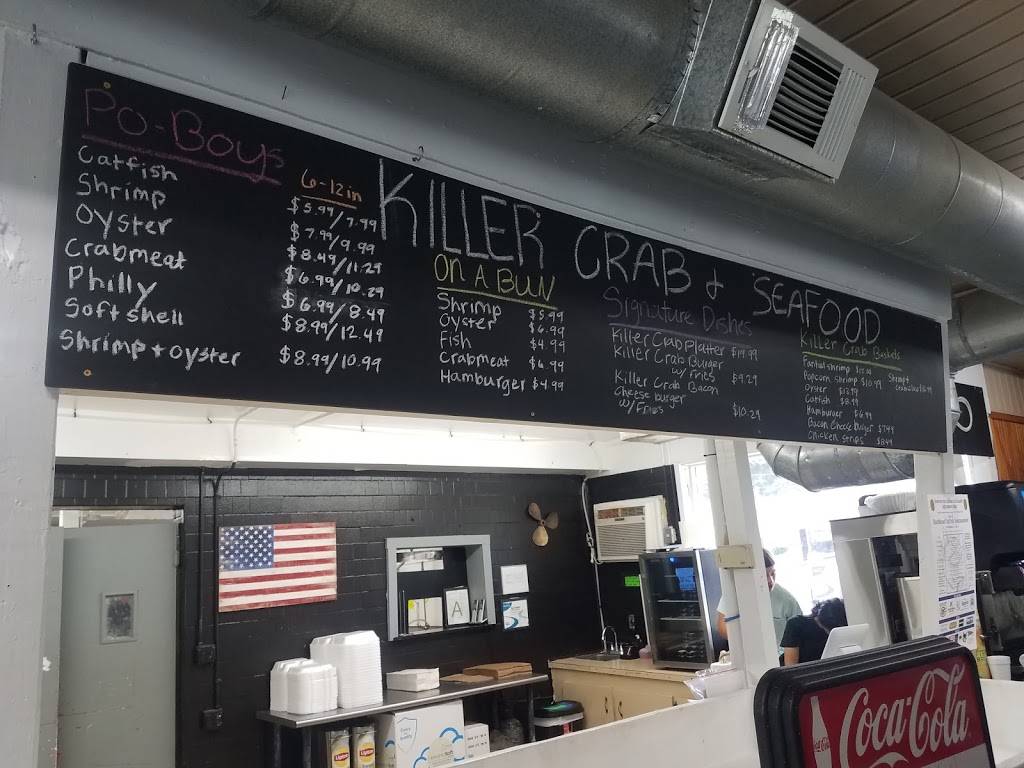 KILLER CRAB & SEAFOOD
Po-Boys
6-12in
Catfish $5.99/7.99
Shrimp $7.99/9.99
Oyster $8.49/11.29
Crabmeat $6.99/10.29
Philly $6.99/8.49
Soft shell $8.99/12.49
Shrimp + oyster $8.99/10.99
On A Bun
Shrimp $5.99
Oyster $6.99
Fish $4.99
Crabmeat $6.99
Hamburger $4.99
Signature Dishes
Killer Crab Platter $19.99
Killer Crab Burger
w/ Fries $9.29
Killer Crab Bacon
Cheese burger
w/Fries $10.29
Killer Crab Baskets
Fantail shrimp
Popcorn shrimp $10.99
Oyster $12.99
Catfish $8.99
Hamburger $6.99
Bacon Cheese burger $7.99
Chicken strips $8.99
A
Lipton
Lipton
Coca-Cola